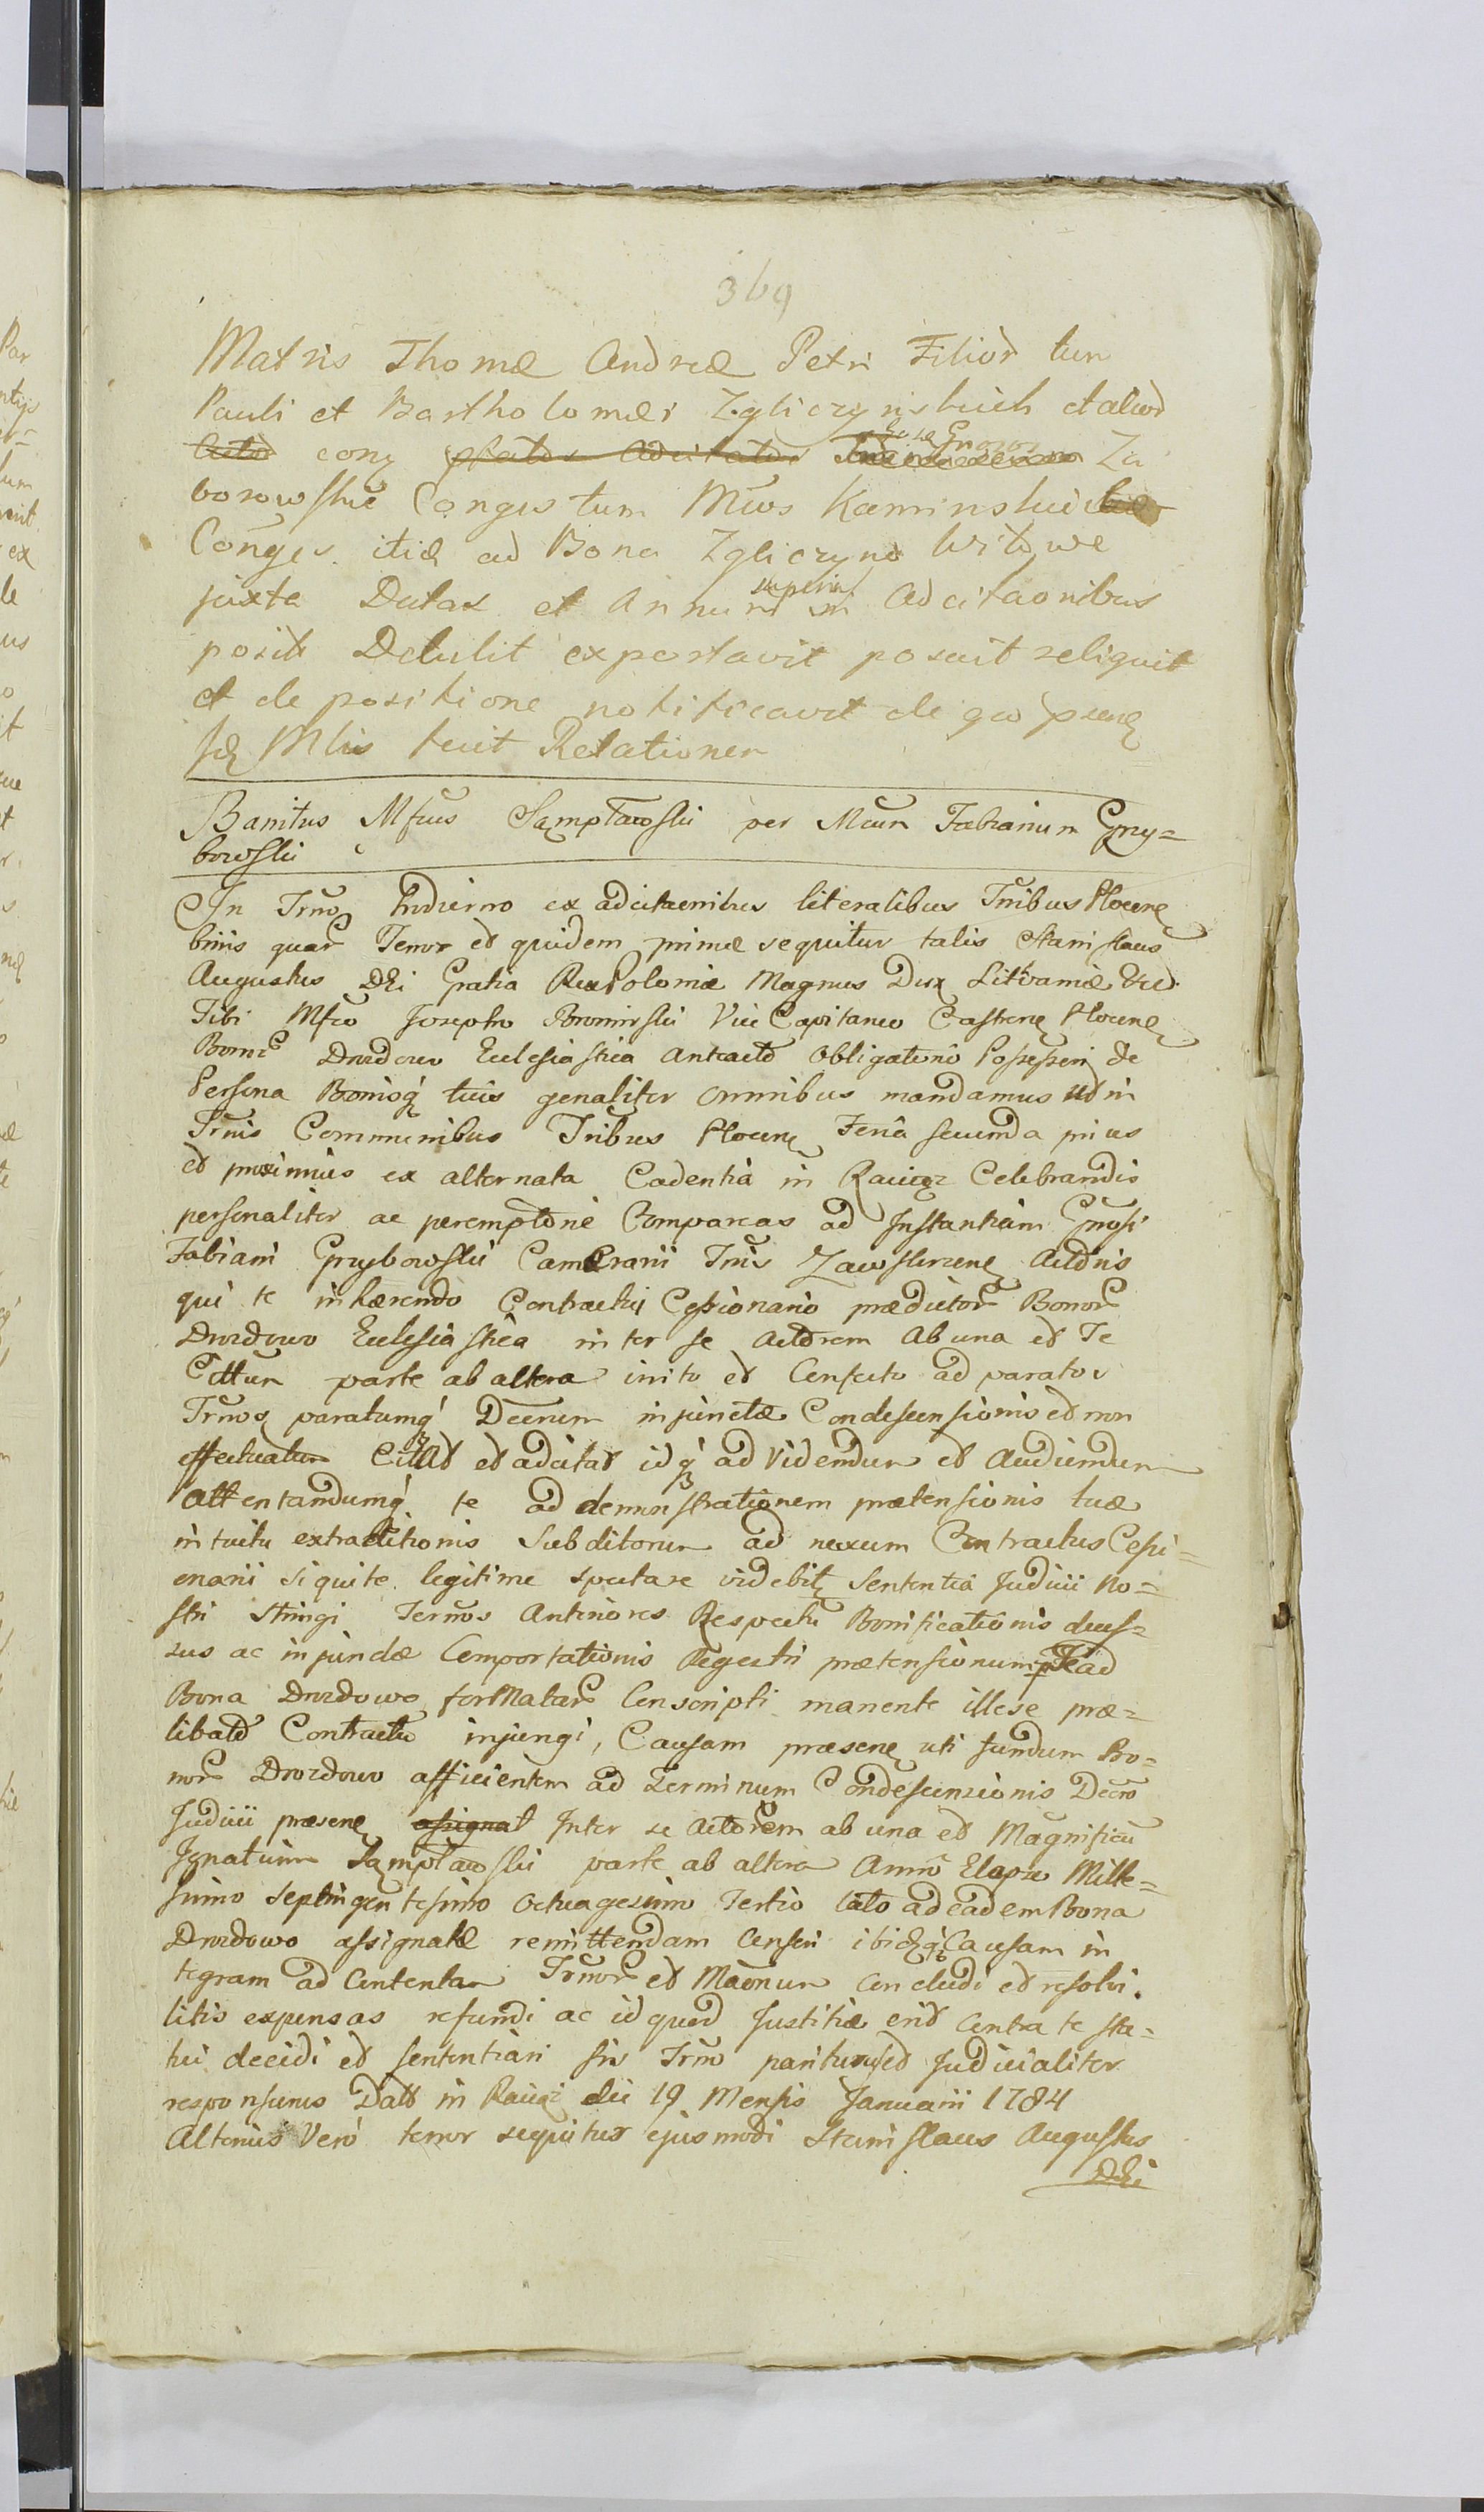 369
Matris Thomæ Andreæ Petri Filior tum
Pauli et Bartholomæi Zgliczynskich et alior
cong Gnoror Za
borowskie Conges tum Mcos Kaminskie
Conges itiq ad Bona Zgliczyno Witowe
juxta Datas et Annum superius in adcitaonibus
posit Detulit exportavit posuit reliquit
et de positione notificavit de quo præns
jdq Mlis fecit Relationem
Banitus Mfcus Sąmpławski per Mcum Fabianum Grzy=
bowski
In Trmo hodierno ex adcitaonibus literalibus Tribus Plocens
binis quar Tenor et quidem primæ sequitur talis Stanislaus
Augustus Dei Gratia Rex Poloniæ Magnus Dux Lithvaniæ &c
Tibi Mfco Josepho Bromirski Vice Capitaneo Castrens Plocens
Bonor Drozdowo Ecclesiastica antacto obligatorio Possessori de
Persona Bonisq tuis genaliter omnibus mandamus ut in
Trnis Communibus Tribus Plocens Feria secunda prius
et proximius ex alternata Cadentia in Raciąz Celebrandis
personaliter ac peremptorie Compareas ad Instantiam Gnosi
Fabiani Grzybowski Camerarii Tris Zawskrzens Actoris
qui te inhærendo Contractui Cessionario prædictor Bonor
Drozdowo Ecclesiastica inter se actorem ab una et Te
Cittum parte ab altera inito et Confecto ad paratos
Trmos paratumq Decrum injunctæ Condescensionis et non
effectuatum Citat et adcitat idq ad Videndum et Audiendum
attentandumq te ad demonstrationem prætensionis tuæ
intuitu extraditionis Subditorum ad nexum Contractus Cessi=
onarii si qui te legitime spectare videbitur Sententia Judicii No=
stri stringi Termos Anteriores Respectu Bonificationis decs=
sus ac injundæ Comportationis Regestri prætensionum per Te ad
Bona Drozdowo formatar Conscripti manente illese præ=
libato Contractu injungi, Causam præsens uti fundum Bo=
nor Drozdowo afficientem ad Terminum Condescensionis Decro
Judicii præsens Inter se Actorem ab una et Magnificu
Ignatium Sąmpławski parte ab altera Anno Elapso Mille=
simo Septingentesimo Octuagesimo Tertio lato ad eadem Bona
Drozdowo assignatæ remittendam Censeri ibidq Causam in
tegram ad Contenta Trmor et Maonum concludi et resolvi.
litis expensas refundi ac id quod Justitiæ erit contra te sta=
tui decidi et sententiari sis Trmo pariturus et Judicialiter
responsurus Datt in Raciąz die 19 Mensis Januarii 1784
Alterius Vero tenor sequitur ejusmodi Stanislaus Augustus
Dei